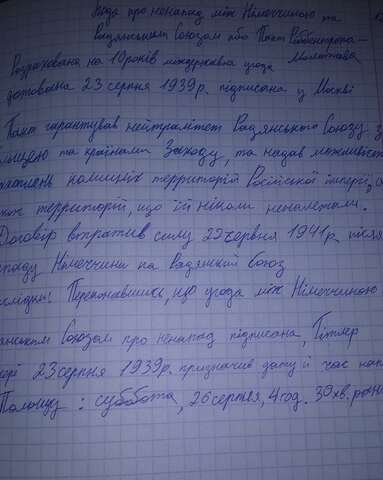 года про ненапад між Німеччиною та
Радянським Союзом або Пакт Ріббентропа-
Молотова
Розрахована на 10 років міждержавна угода
датована 23 серпня 1939 р. підписана у Москві
Пакт гарантував нейтралітет Радянського Союзу з
льщею та країнами Заходу, та надав можливість
колишніх территорій Російської імперії, а
ж територій, що їй ніколи неналежали.
Договір втратив силу 22 червня 1941 р. після
нападу Німеччини на Радянский Союз
Переконавшись, що угода між Німеччиною
янським Союзом про ненапад підписана, Гітлер
23 серпня 1939 р. призначив дату й час нап
Польщу : суббота, 26 серпня, 4 год. 30 хв. ранк